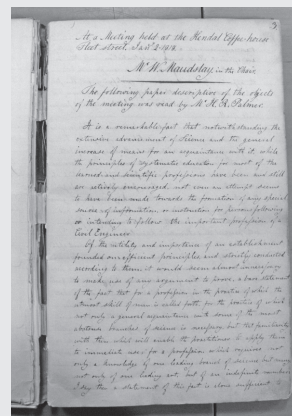 At a Meeting held at the Kendal Coffee-house
Fleet Street, Jany 2. 1818.
Mr W. Maudslay in the Chair
The following paper descriptive of the objects
of the meeting was read by Mr H. R. Palmer
It is a remarkable fact that notwithstanding the
extensive advancement of Science and the general
increase of means for an acquaintance with it, while
the principles of systematic education for most of the
learned and scientific professions have been and still
are actively encouraged, not even an attempt seems
to have been made towards the formation of any special
source of information or instruction for persons following
or intending to follow the important profession of a
Civil Engineer.
Of the utility and importance of an establishment
founded on efficient principles and strictly conducted
according to them it would seem almost unnecessary
to make use of any argument to prove, a bare statement
of the fact that for a profession in the practice of which the
utmost skill of man is called forth, for the practice of which
not only a general acquaintance with some of the most
abstruse branches of science is necessary but that familiarity
with them which will enable the practitioner to apply them
to immediate use: for a profession which requires not
only a knowledge of one leading branch of science and
not only of one leading art, but of an indefinite number
I say then a statement of this fact is alone sufficient to